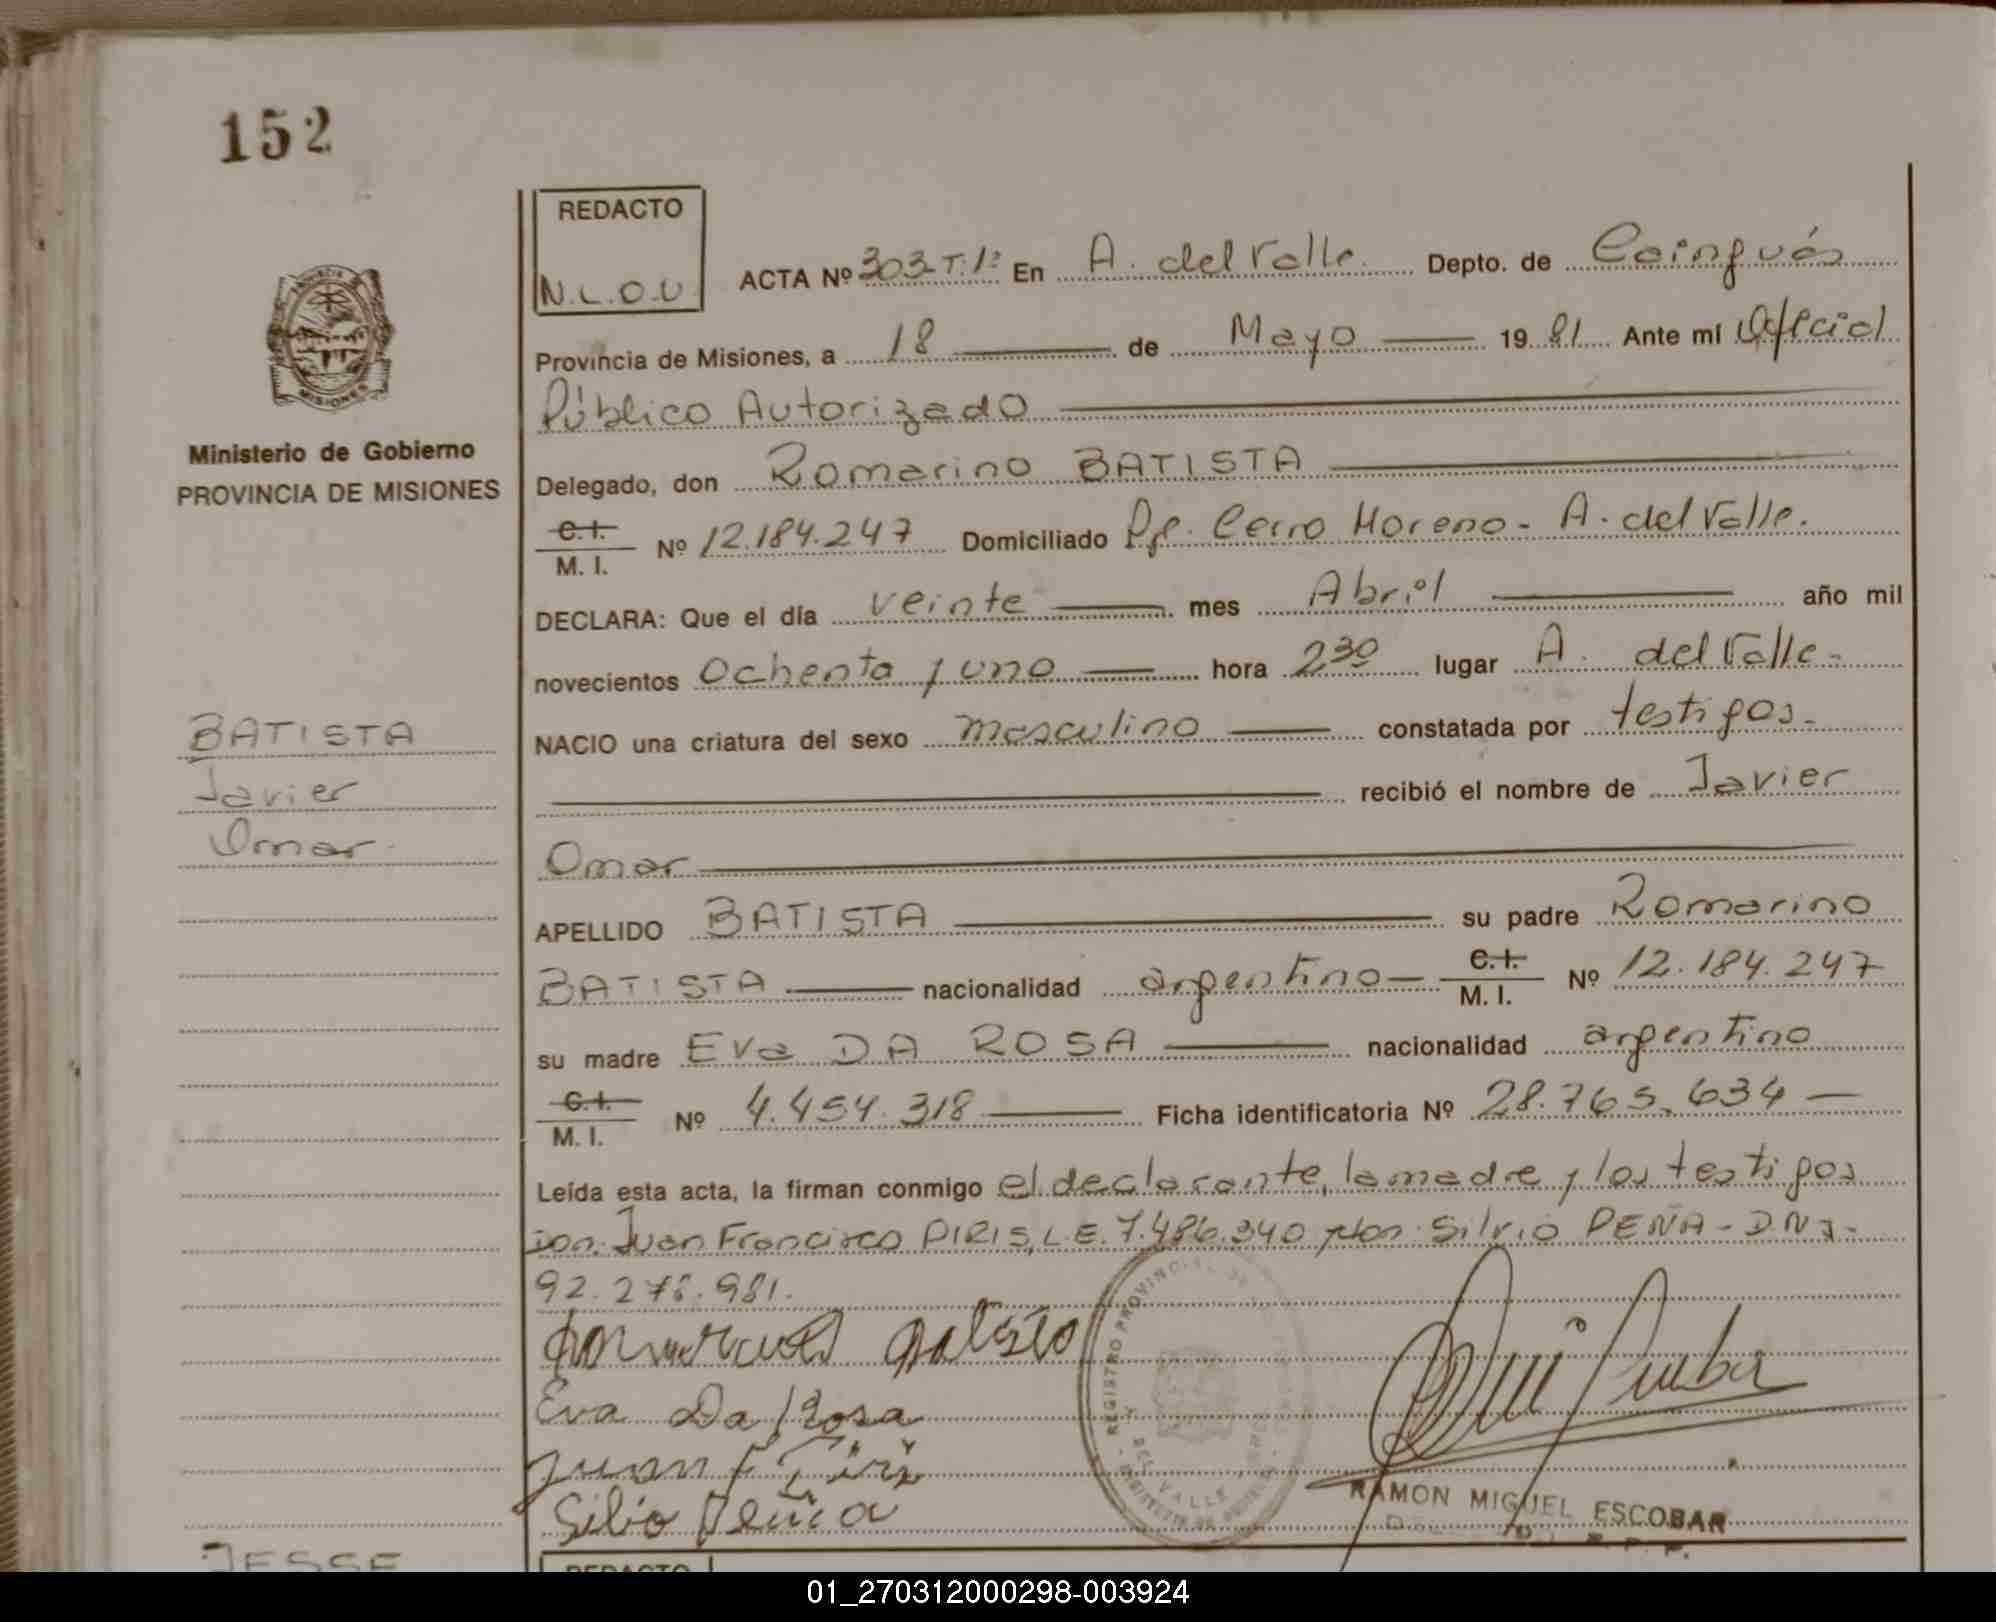 152
REDACTO
N.L.O.U
ACTA Nº 303 T.1º En A. del Valle Depto. de Cainguás
Provincia de Misiones, a 18 de Mayo 1981 Ante mí Oficial
Público Autorizado
Ministerio de Gobierno
PROVINCIA DE MISIONES
Delegado, don Romarino BATISTA
C.I.
M.I. Nº 12.184.247 Domiciliado Pje. Cerro Moreno - A. del Valle.
DECLARA: Que el día veinte mes Abril año mil
novecientos ochenta y uno hora 2 30 lugar A. del Valle -
NACIO una criatura del sexo masculino constatada por testigos.
recibió el nombre de Javier
Omar
BATISTA
Javier
Omar
APELLIDO BATISTA su padre Romarino
BATISTA nacionalidad argentino C.I. M.I. Nº 12.184.247
su madre Eva DA ROSA nacionalidad argentino
C.I.
M.I. Nº 4.454.318 Ficha identificatoria Nº 28.765.634 —
Leída esta acta, la firman conmigo el declarante, la madre y los testigos
don Juan Francisco PIRIS, L.E. 7.486.340 y don Silvio PEÑA - D.N.I.-
92.276.981.
Eva Da Rosa
Juan F Piris
Silvio Peña
REGISTRO PROVINCIAL DE
DEL VALLE
RAMON MIGUEL ESCOBAR
JESSE
REDACTO
01_270312000298-003924